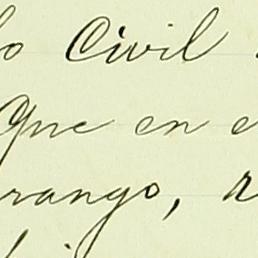 lo Civil
Que en e
rango, r